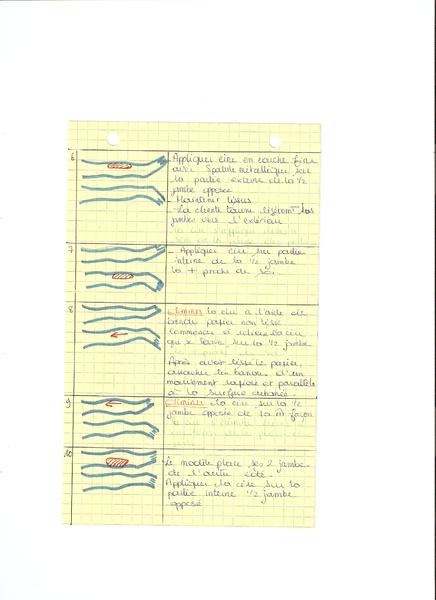 6
- Appliquer cire en couche fine
avec Spatule métallique sur
la partie externe de la 1/2
jambe opposée
- Maintenir tissus
- La cliente tourne légèremt les
jambes vers l'extérieur
7
- Appliquer cire sur partie
interne de la 1/2 jambe
la + proche de soi
8
Eliminer la cire à l'aide de
bandes papier non tissé
commencer et retirer la cire
qui se trouve sur la 1/2 jambe
Après avoir lissé le papier,
arracher les bandes d'un
mouvement rapide et parallèle
à la surface
9
Eliminer la cire sur la 1/2
jambe opposée de la m façon
10
Le modèle place ses 2 jambes
de l'autre côté
Appliquer la cire sur la
partie interne 1/2 jambe
opposé